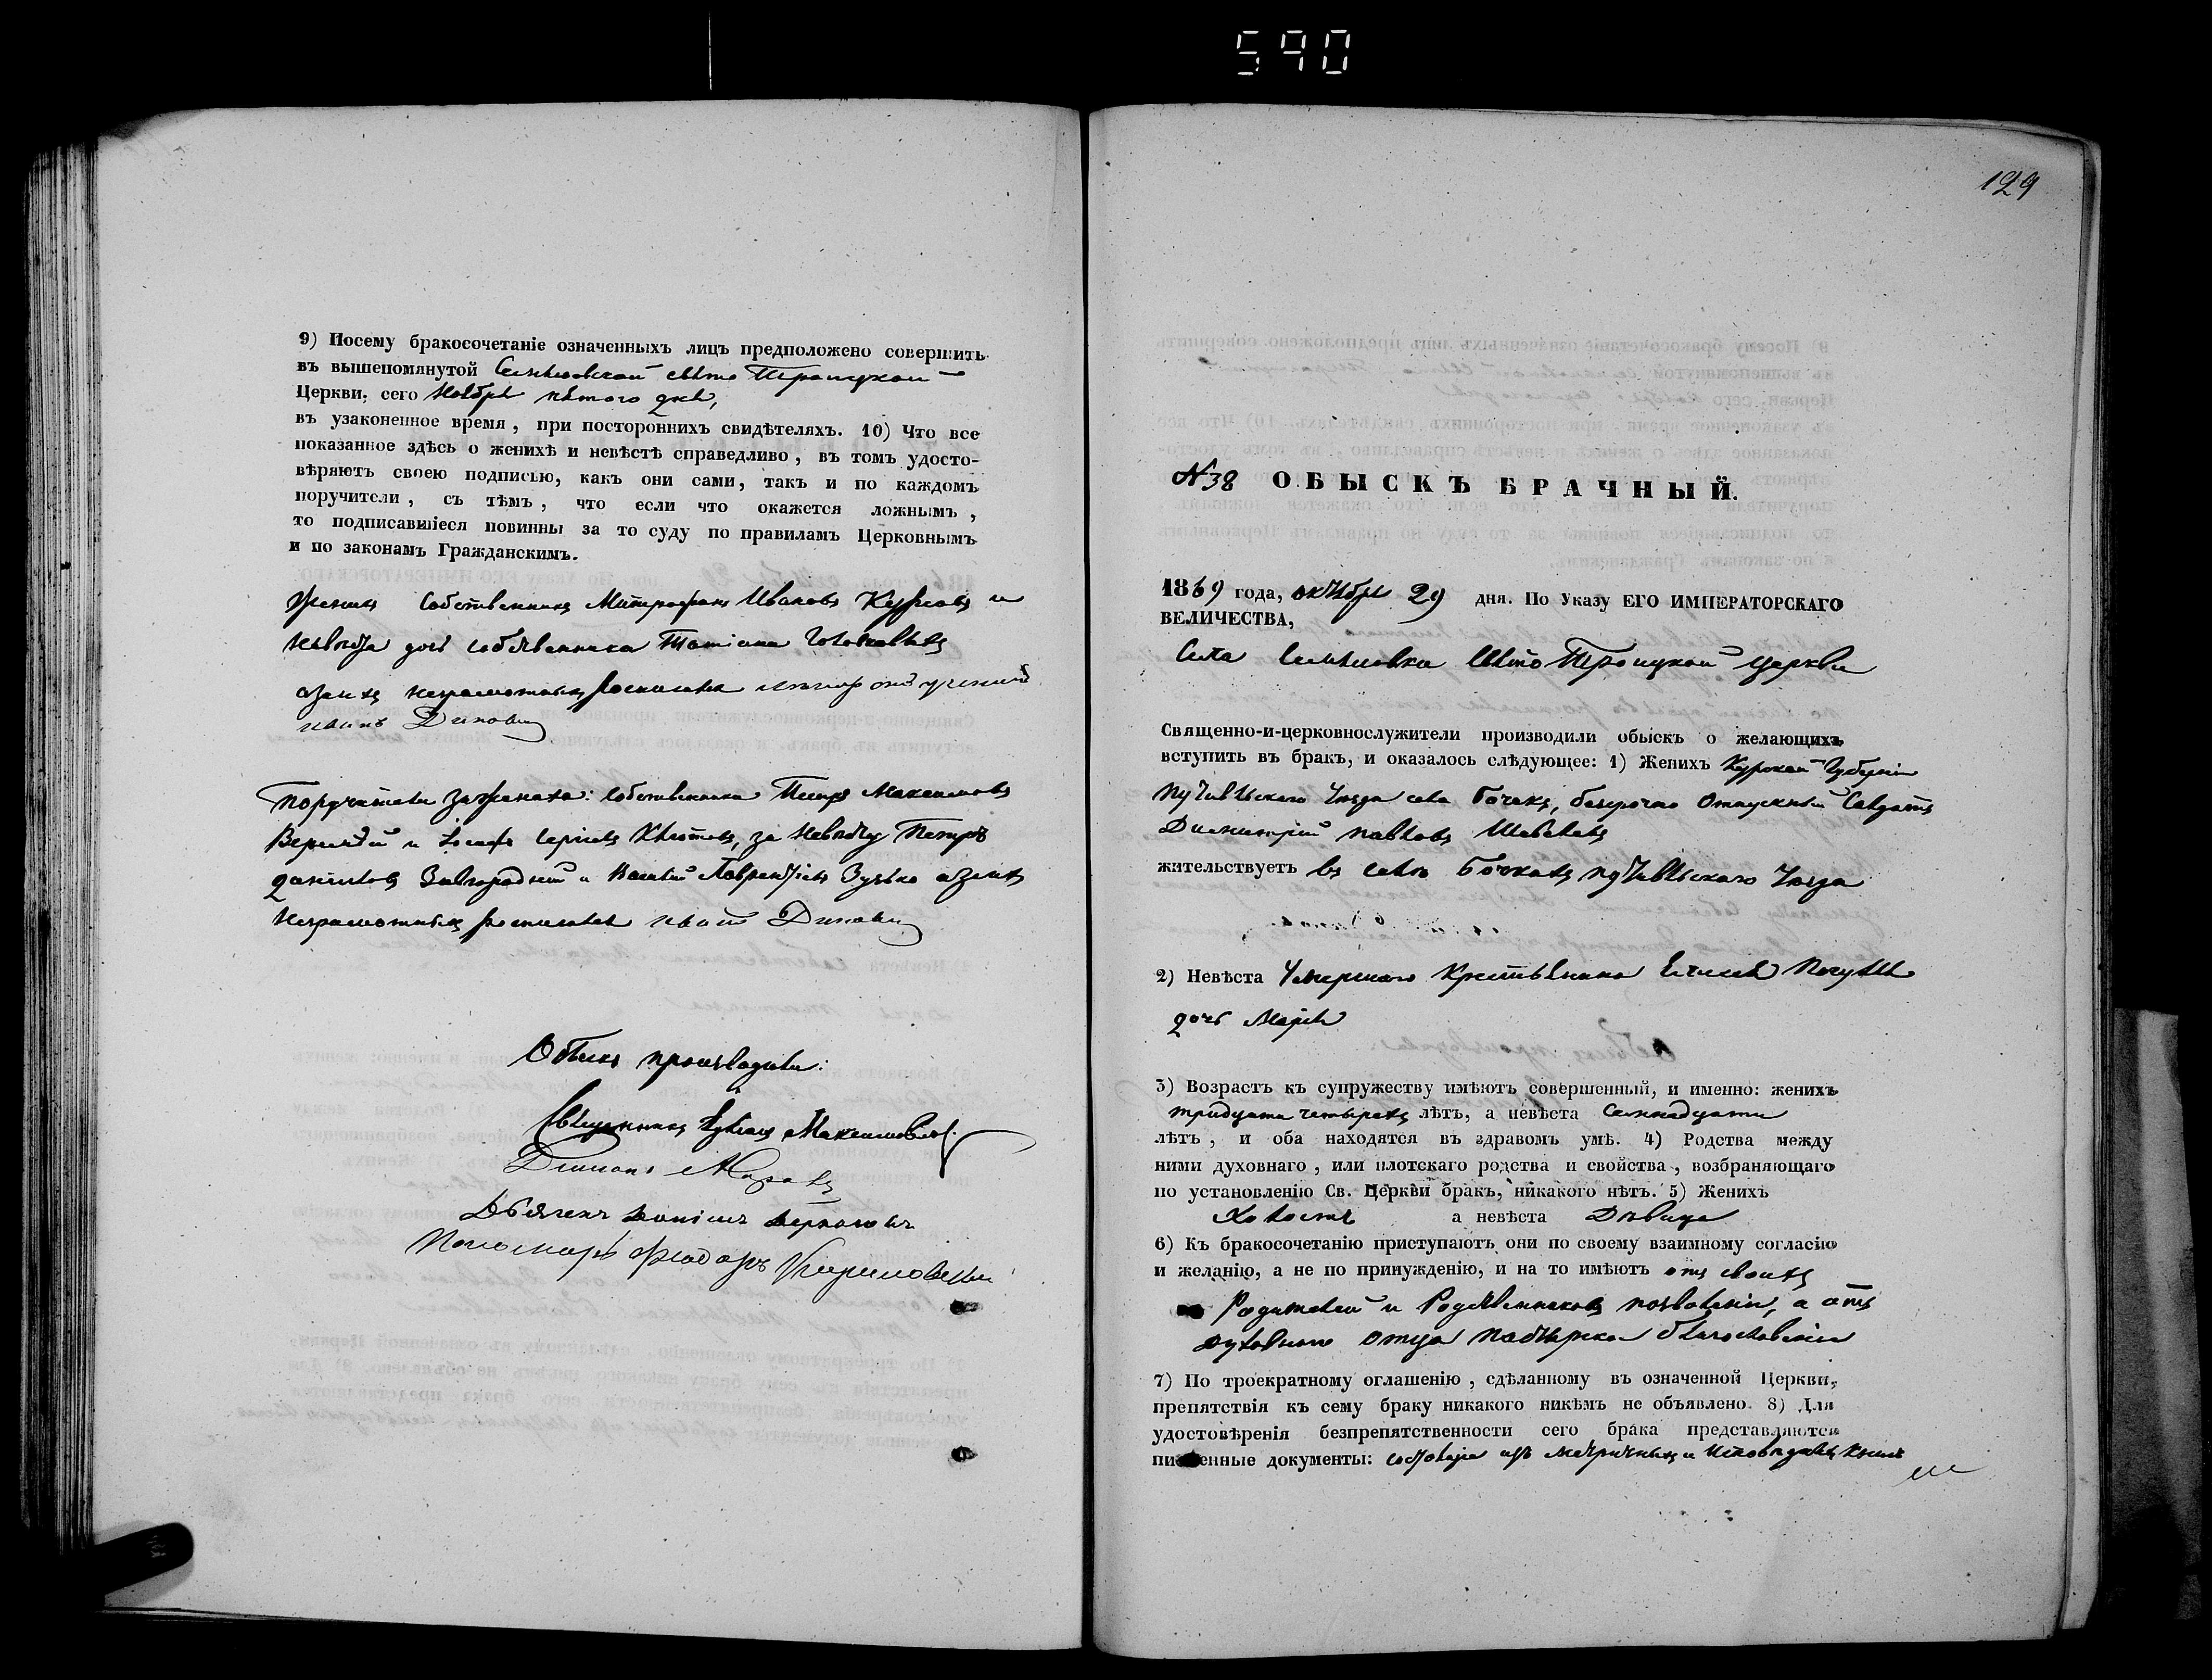 590
9) Посему бракосочетаніе означенныхъ лицъ предположено совершить
въ вышепомянутой свято Троицкой
Церкви, сего Ноября пятого дня,
въ узаконенное время, при постороннихъ свидѣтеляхъ. 10) Что все
показанное здѣсь о женихѣ и невѣстѣ справедливо, въ томъ удосто-
вѣряютъ своею подписью, какъ они сами, такъ и по каждомъ
поручители, съ тѣмъ, что если что окажется ложнымъ,
то подписавшіеся повинны за то суду по правиламъ Церковнымъ
и по законамъ Гражданскимъ.
Женихъ собственникъ Митрофанъ Ивановъ и
невѣста дочь собственника Татіана
а за ихъ неграмотныхъ росписался
иванъ
Поручители за жениха: собственники Петръ Максимовъ
и Іосифъ за невѣсту Петръ
Даниловъ Завгородній и Василій Лаврентіевъ Зузько а за ихъ
неграмотныхъ росписался иванъ
Обыскъ производили:
Священникъ Максимовичъ
Діаконъ
Дьячекъ
Пономарь Феодоръ
129
№ 38 ОБЫСКЪ БРАЧНЫЙ.
1869 года, октября 29 дня. По Указу ЕГО ИМПЕРАТОРСКАГО
ВЕЛИЧЕСТВА,
Села свято Троицкой церкви
Священно-и-церковнослужители производили обыскъ о желающихъ
вступить въ бракъ, и оказалось слѣдующее: 1) Женихъ Курской Губерніи
Путивльскаго уѣзда села Бочекъ, безсрочно отпускный Солдатъ
Димитрій Павловъ Шевелевъ
жительствуетъ въ селѣ Бочкахъ Путивльскаго уѣзда
2) Невѣста умершаго Крестьянина
дочь Марія
3) Возрастъ къ супружеству имѣютъ совершенный, и именно: женихъ
тридцати четырехъ лѣтъ, а невѣста семнадцати
лѣтъ, и оба находятся въ здравомъ умѣ. 4) Родства между
ними духовнаго, или плотскаго родства и свойства, возбраняющаго
по установленію Св. Церкви бракъ, никакого нѣтъ. 5) Женихъ
Холостъ а невѣста Дѣвица
6) Къ бракосочетанію приступаютъ они по своему взаимному согласію
и желанію, а не по принужденію, и на то имѣютъ отъ своихъ
Родителей и Родственниковъ позволеніе, а отъ
духовнаго отца пастырское благословеніе
7) По троекратному оглашенію, сдѣланному въ означенной Церкви,
препятствія къ сему браку никакого никѣмъ не объявлено. 8) Для
удостовѣренія безпрепятственности сего брака представляются
письменные документы: изъ метричныхъ и исповѣдныхъ книгъ